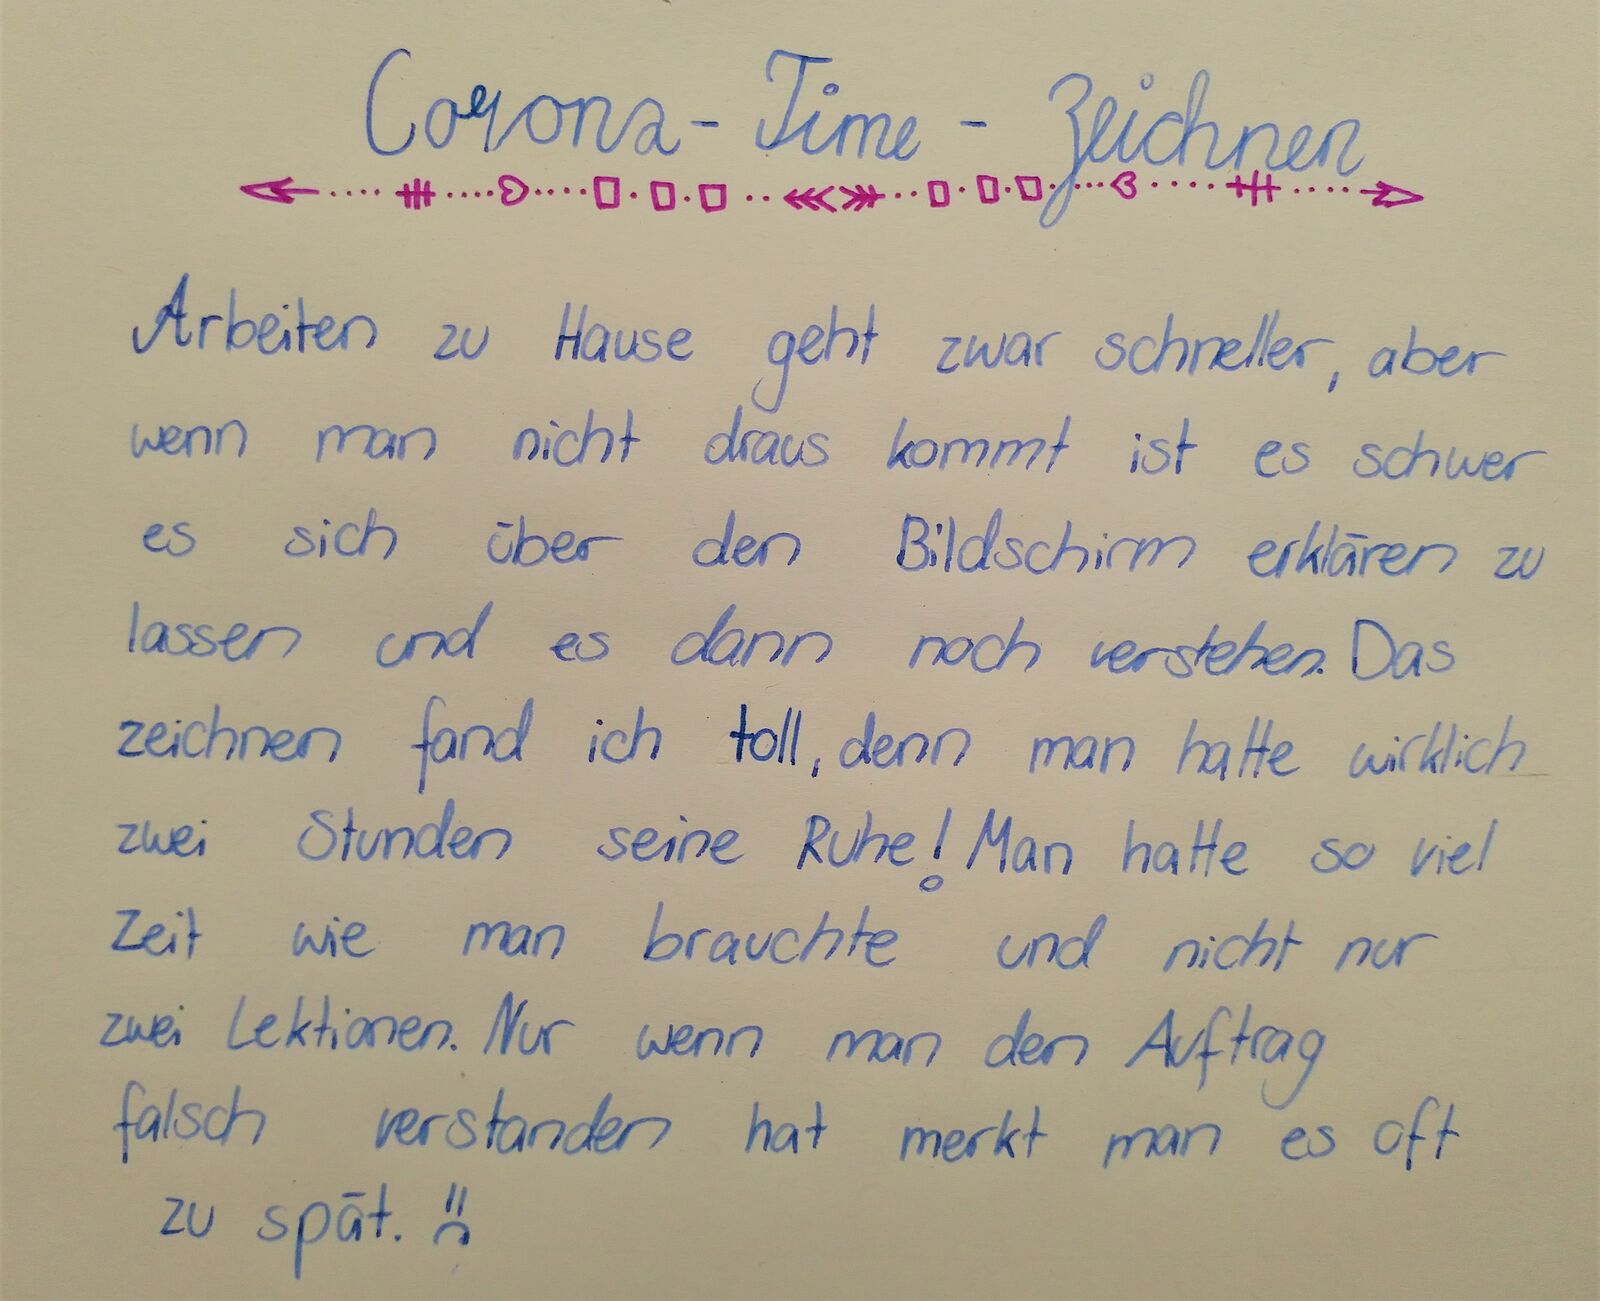 Corona-Time-Zeichnen
Arbeiten zu Hause geht zwar schneller, aber
wenn man nicht draus kommt ist es schwer
es sich über den Bildschirm erklären zu
lassen und es dann noch verstehen. Das
zeichnen fand ich toll, denn man hatte wirklich
zwei Stunden seine Ruhe! Man hatte so viel
Zeit wie man brauchte und nicht nur
zwei Lektionen. Nur wenn man den Auftrag
falsch verstanden hat merkt man es oft
zu spät.